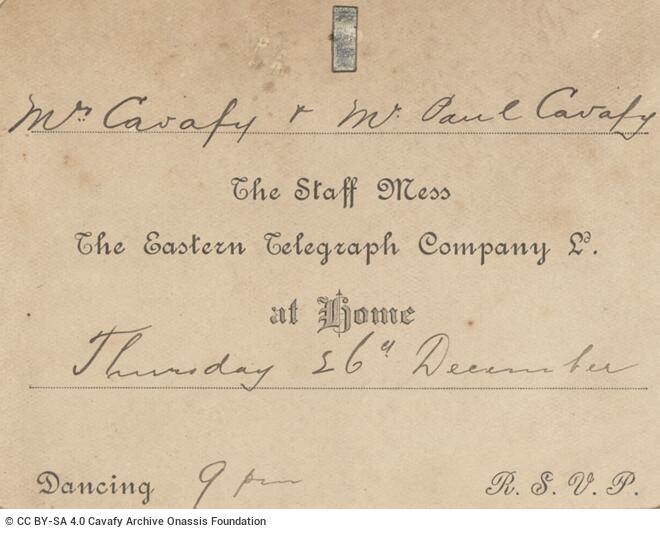 Mrs Cavafy & Mr Paul Cavafy
The Staff Mess
The Eastern Telegraph Company Ld.
at Home
Thursday 26th December
Dancing 9 pm R. S. V. P.
© CC BY-SA 4.0 Cavafy Archive Onassis Foundation